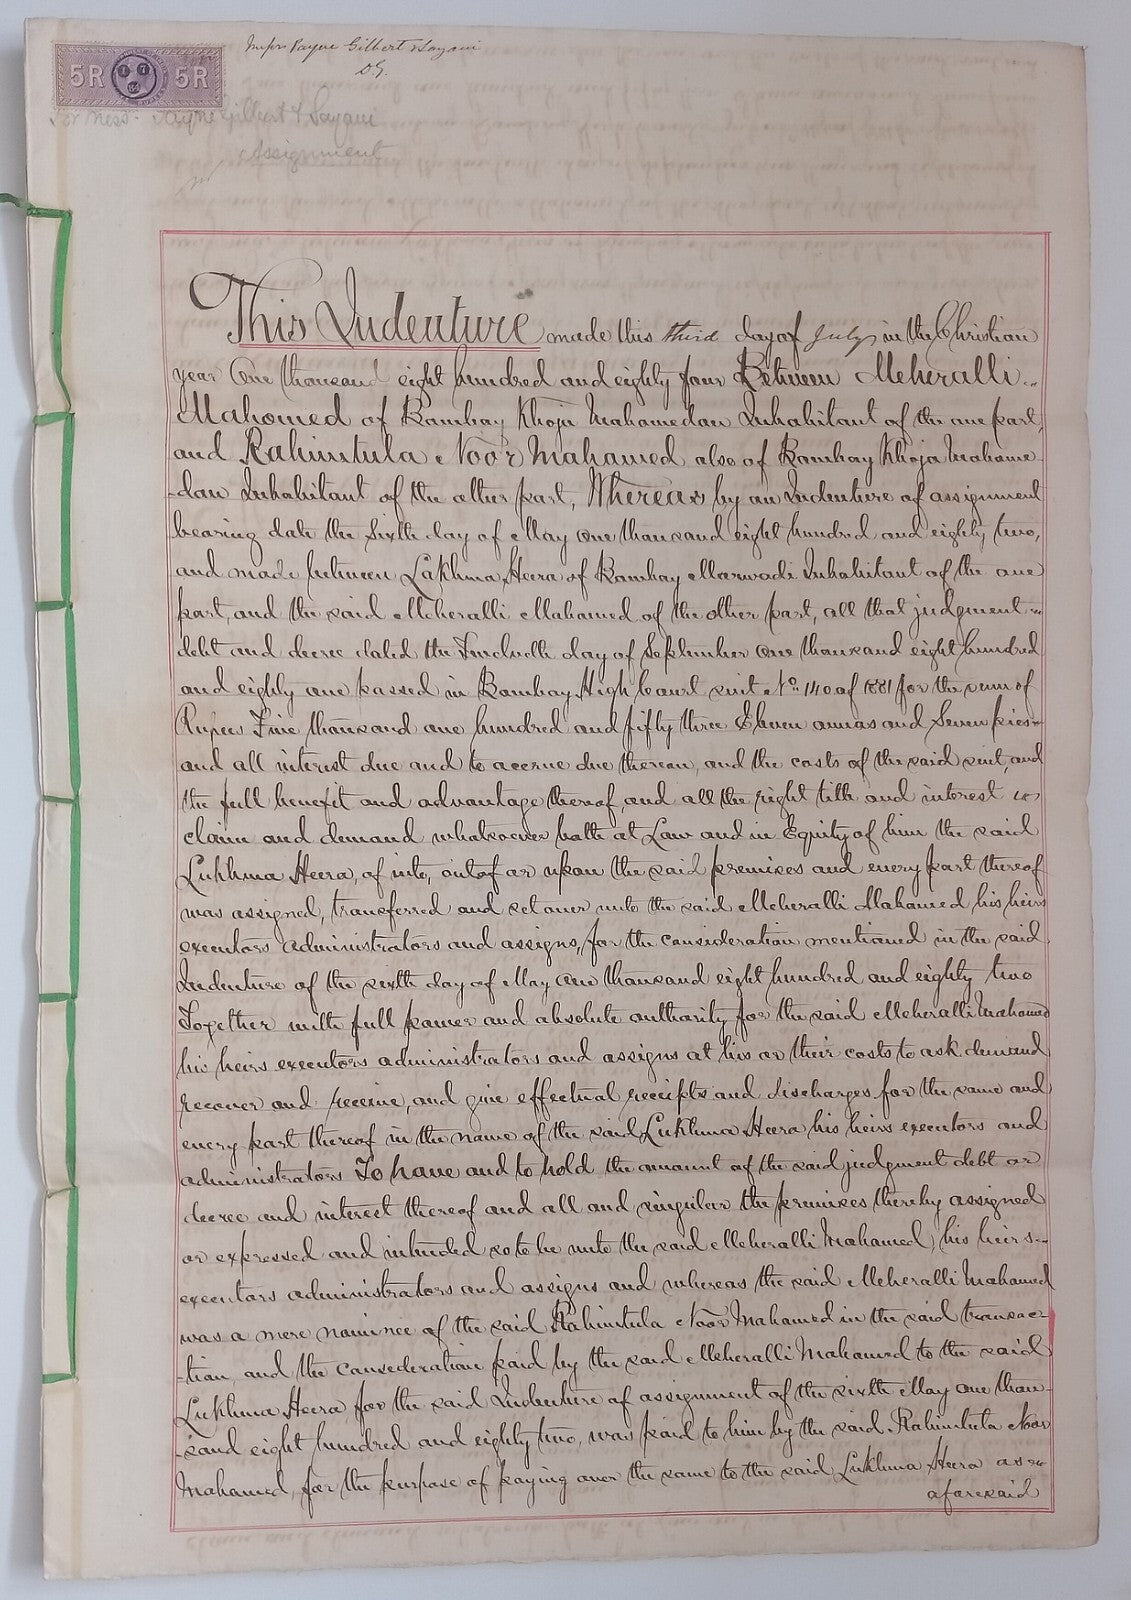 5R 5R
Messrs Payne Gilbert & Sayani
For Messrs. Payne Gilbert & Sayani
Assignment
This Indenture made this third day of July in the Christian
year One thousand eight hundred and eighty four Between Meheralli
Mahomed of Bombay Khoja Mahomedan Inhabitant of the one part,
and Rahimtula Noor Mahomed also of Bombay Khoja Mahome-
-dan Inhabitant of the other part, Whereas by an Indenture of assignment
bearing date the Sixth day of May One thousand eight hundred and eighty two,
and made between Lukhma Heera of Bombay Marwadi Inhabitant of the one
part, and the said Meheralli Mahomed of the other part, all that judgment
debt and decree dated the Twelveth day of September One thousand eight hundred
and eighty one passed in Bombay High Court suit No. 140 of 1881 for the sum of
Rupees Five thousand one hundred and fifty three Eleven annas and Seven pies
and all interest due and to accrue due thereon, and the costs of the said suit, and
the full benefit and advantage thereof, and all the right title and interest
claim and demand whatsoever both at Law and in Equity of him the said
Lukhma Heera, of into, out of or upon the said premises and every part thereof
was assigned, transferred and set over unto the said Meheralli Mahomed his heirs
executors administrators and assigns, for the consideration mentioned in the said
Indenture of the sixth day of May One thousand eight hundred and eighty two
Together with full power and absolute authority for the said Meheralli Mahomed
his heirs executors administrators and assigns at his or their costs to ask demand
recover and receive, and give effectual receipts and discharges for the same and
every part thereof in the name of the said Lukhma Heera his heirs executors and
administrators To have and to hold the amount of the said judgment debt or
decree and interest thereof and all and singular the premises thereby assigned
or expressed and intended so to be unto the said Meheralli Mahomed, his heirs
executors administrators and assigns and whereas the said Meheralli Mahomed
was a mere nominee of the said Rahimtula Noor Mahomed in the said transac-
-tion, and the consederation paid by the said Meheralli Mahomed to the said
Lukhma Heera for the said Indenture of assignment of the sixth May One thou-
-sand eight hundred and eighty two, was paid to him by the said Rahimtula Noor
Mahomed, for the purpose of paying over the same to the said Lukhma Heera as
aforesaid